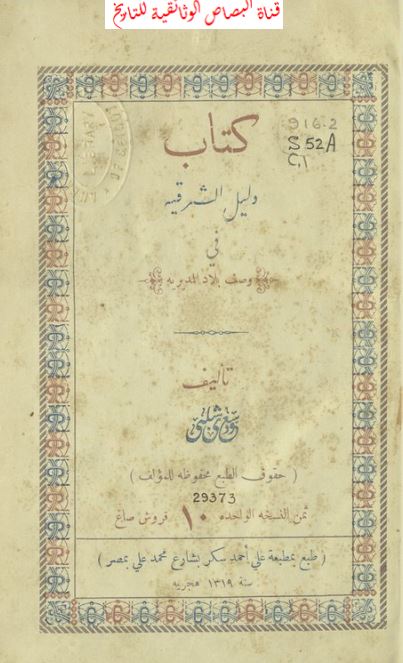 قناة البصاص الوثائقية للتاريخ
916.2
S.52A
C.1
كتاب
دليل الشرقيه
في
وصف بلاد المديريه
تأليف
( حقوق الطبع محفوظه للمؤلف )
29373
ثمن النسخه الواحده ١٠ قروش صاغ
( طبع بمطبعة علي أحمد سكر بشارع محمد علي بمصر )
سنة ١٣١٩ هجريه